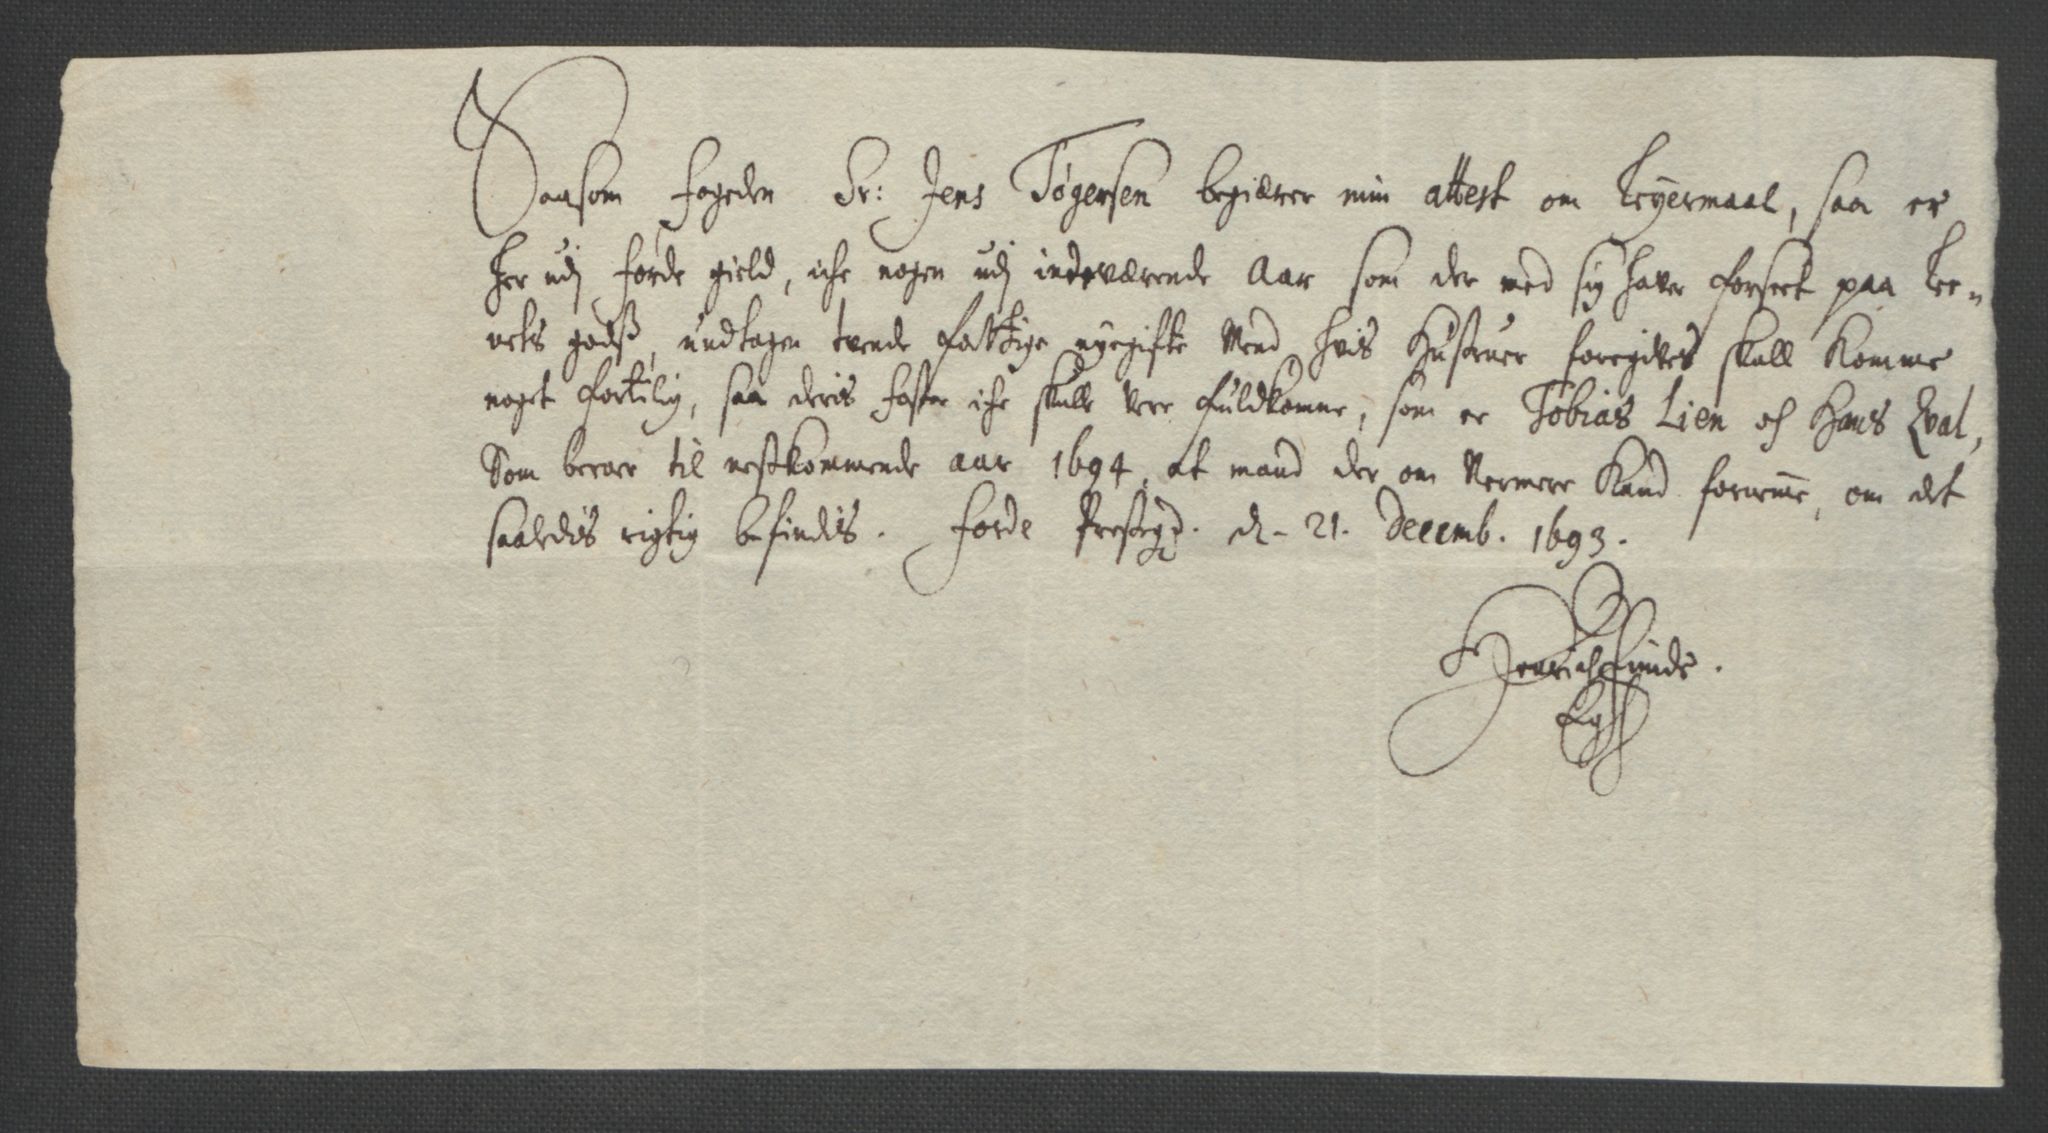 Saasom fogeden Sr: Jens Tøgersen begiærer min attest om Leyermaal, saa er
her udj førde gield, iche nogen udj indeværende Aar som der med sig haver forseet paa
godß, undtagen tvende fattige nyegifte Mend hvis Hustruer foregives skall komme
noget fortilig, saa deris foster iche skulle vere fuldkomne, som er Tobias Lien och Hans Qval,
Som beroer til nestkommende aar 1694, at mand der om Nermere Kand forneme, om det
saaledis rigtig befindis. Førde Prestegd. d. 21. Decemb. 1693.
Henrich Finde.
Egh